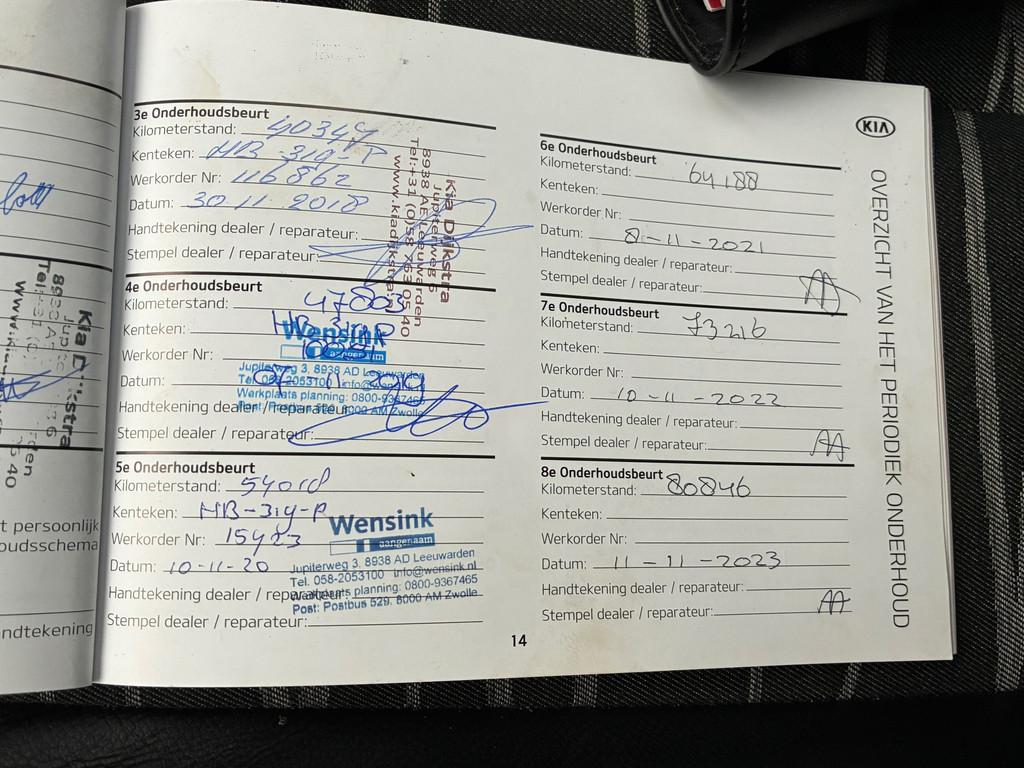 3e Onderhoudsbeurt
Kilometerstand: 40349
Kenteken: HB-319-P
Werkorder Nr: 116862
Datum: 30 11 2018
Handtekening dealer / reparateur:
Stempel dealer / reparateur:
Kia Dijkstra
Jupiterweg 5
8938 AE Leeuwarden
Tel.:+31 (0)58 763 05 40
www.kiadijkstra
4e Onderhoudsbeurt
Kilometerstand: 47803
Kenteken:
Werkorder Nr:
Datum:
Handtekening dealer / reparateur:
Stempel dealer / reparateur:
Wensink
aangenaam
Jupiterweg 3, 8938 AD Leeuwarden
Tel. 058-2053100 info@
Werkplaats planning: 0800-9367465
8000 AM Zwolle
5e Onderhoudsbeurt
Kilometerstand:
Kenteken: HB-319-P
Werkorder Nr: 15423
Datum: 10-11-20
Handtekening dealer / reparateur:
Stempel dealer / reparateur:
Wensink
aangenaam
Jupiterweg 3, 8938 AD Leeuwarden
Tel. 058-2053100 info@wensink.nl
Werkplaats planning: 0800-9367465
Post: Postbus 529, 8000 AM Zwolle
6e Onderhoudsbeurt
Kilometerstand: 64188
Kenteken:
Werkorder Nr:
Datum: 8-11-2021
Handtekening dealer / reparateur:
Stempel dealer / reparateur:
7e Onderhoudsbeurt
Kilometerstand: 73216
Kenteken:
Werkorder Nr:
Datum: 10-11-2022
Handtekening dealer / reparateur:
Stempel dealer / reparateur:
8e Onderhoudsbeurt
Kilometerstand: 80846
Kenteken:
Werkorder Nr:
Datum: 11-11-2023
Handtekening dealer / reparateur:
Stempel dealer / reparateur:
KIA
OVERZICHT VAN HET PERIODIEK ONDERHOUD
14
t persoonlijk
oudsschema
ndtekening